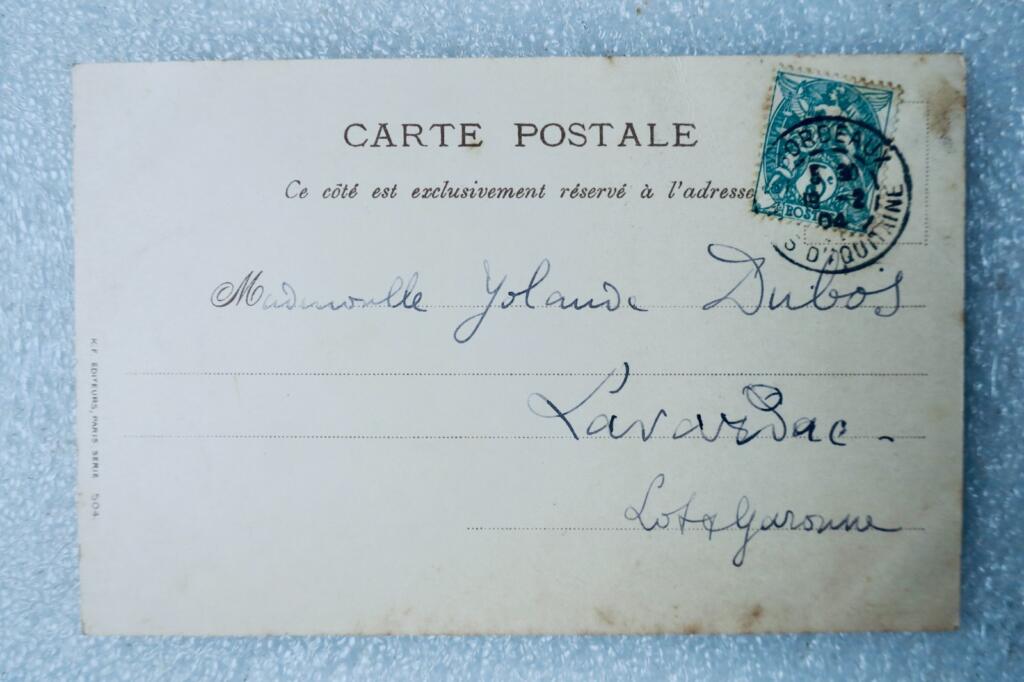 CARTE POSTALE
Ce côté est exclusivement réservé à l'adresse
BORDEAUX
5 30
18 -2
04
S D'AQUITAINE
POSTES
Mademoiselle Yolande Dubos
Lavardac -
Lot & Garonne
K.F. EDITEURS, PARIS SERIE 504